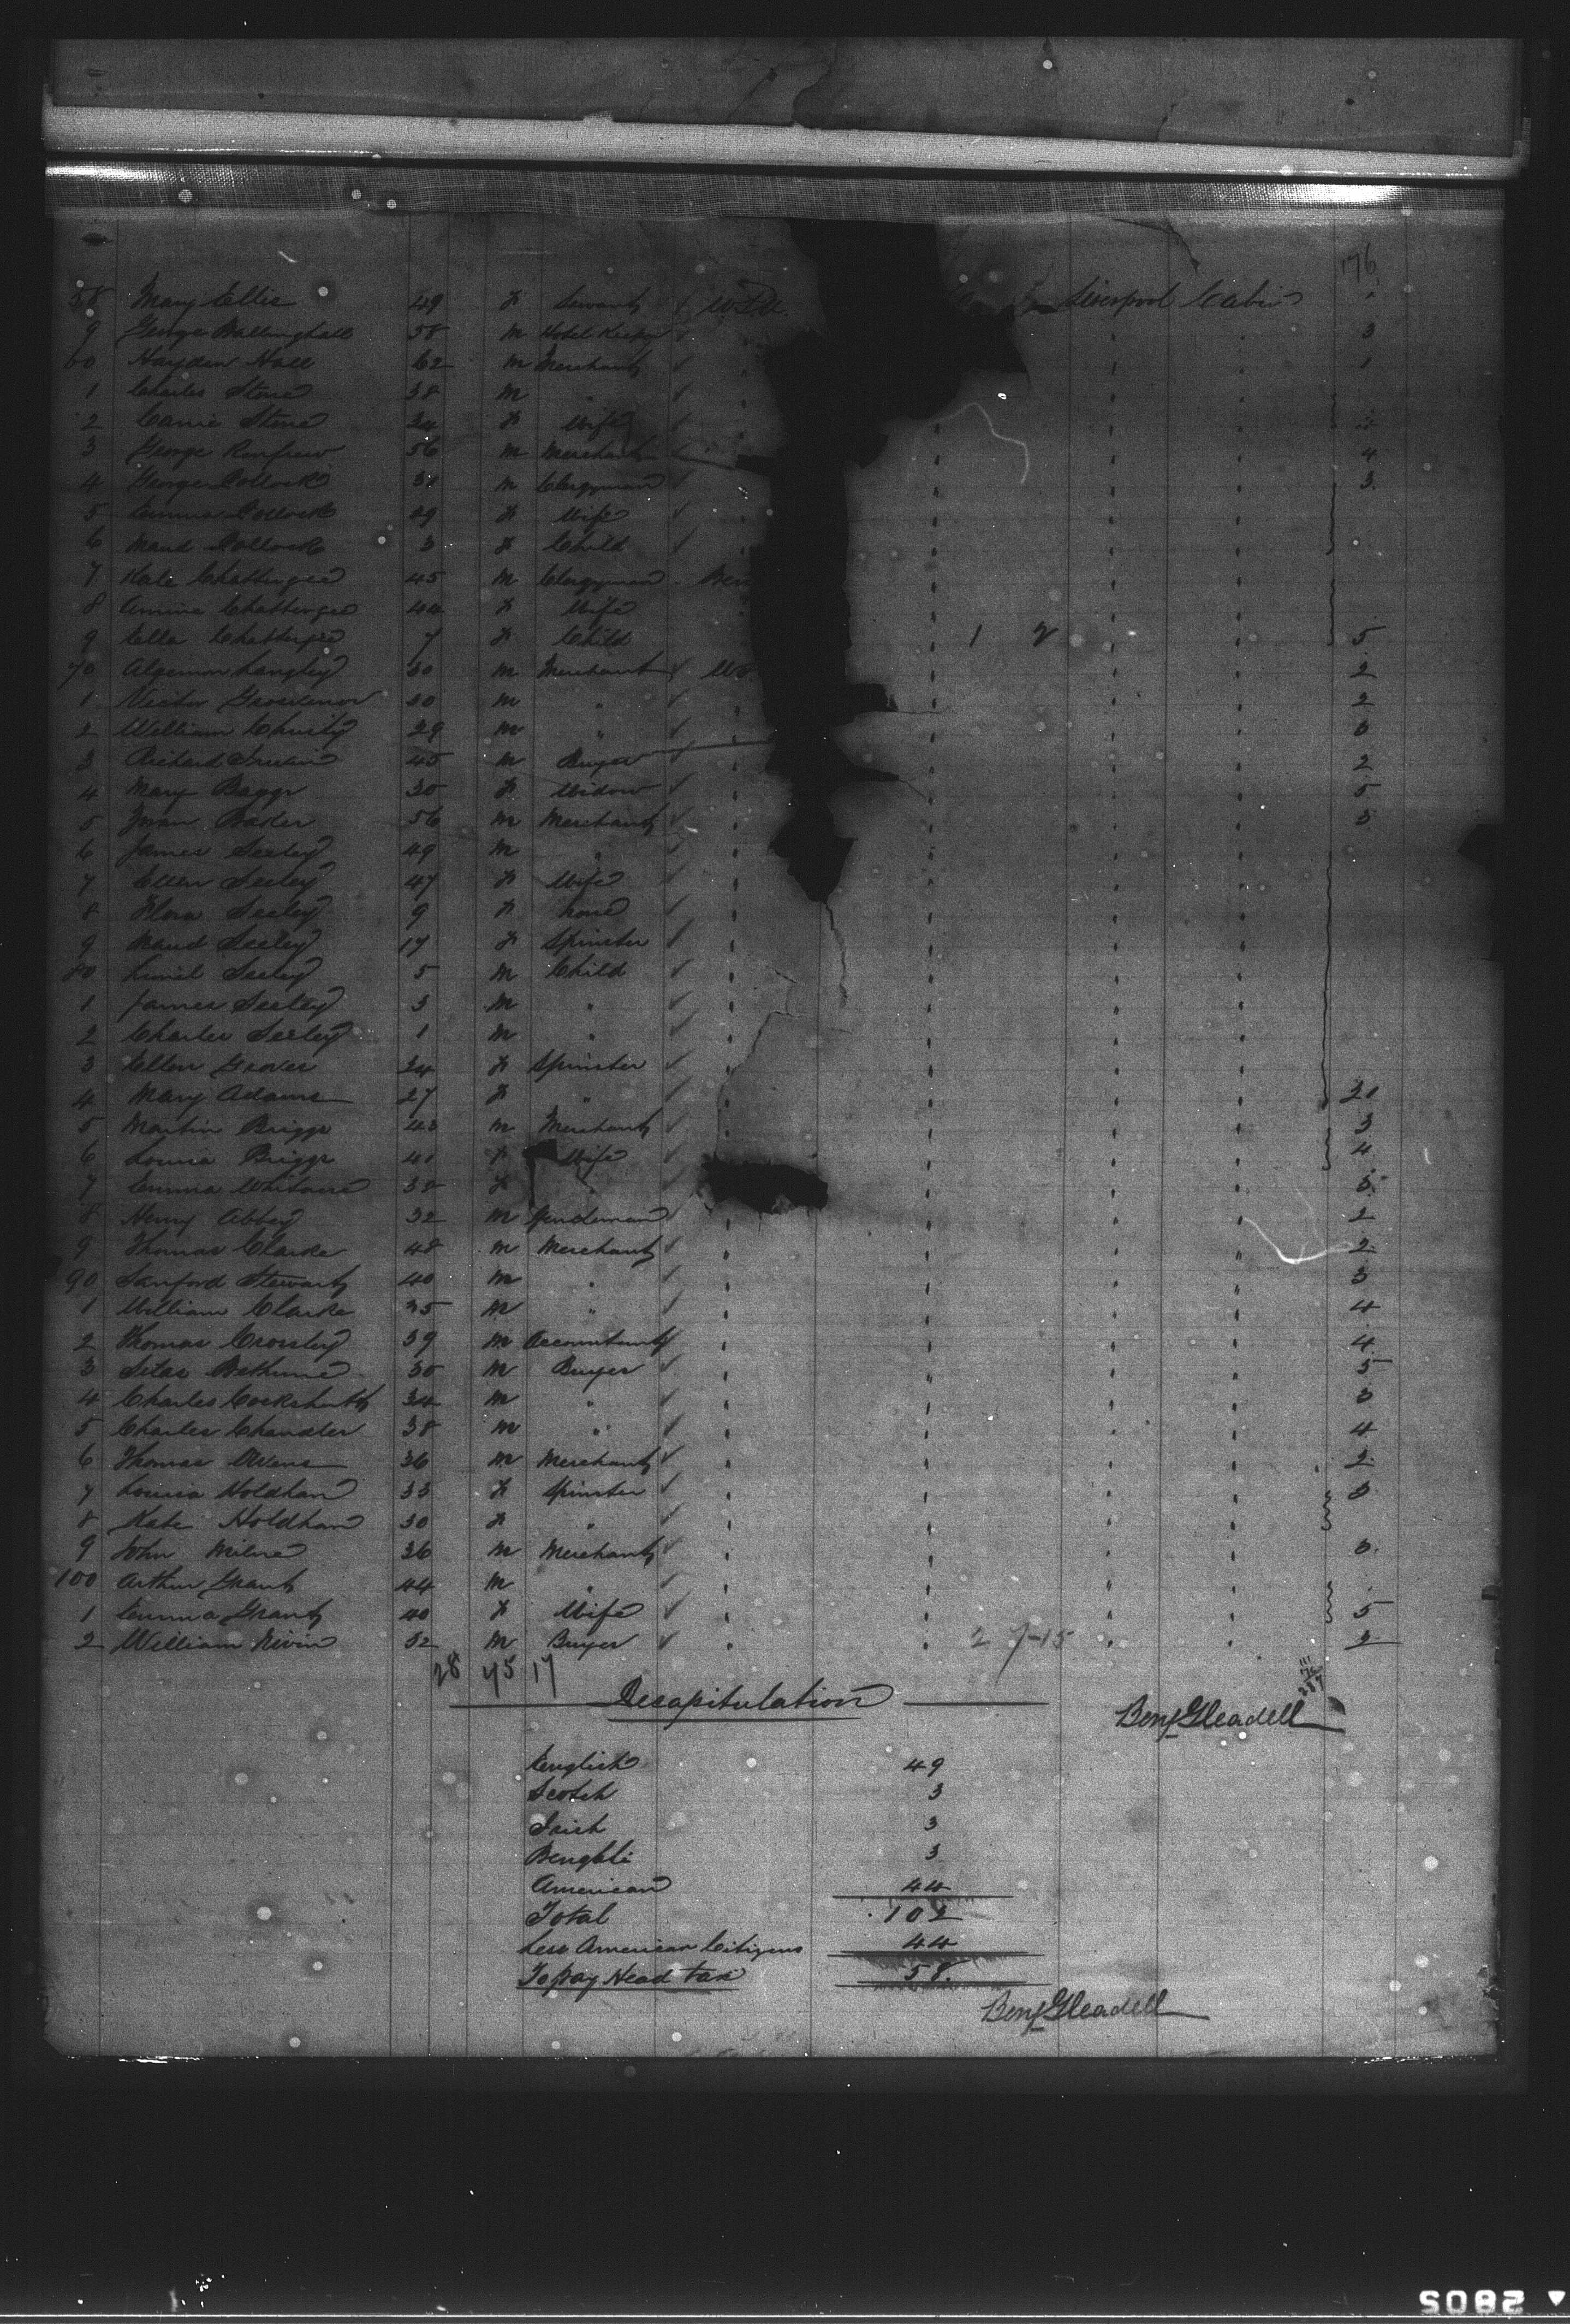 176
58 Mary Ellis 49 f Servant ✓ U.S.A. Liverpool Cabin 1
9 George Ballinghall 58 m Hotel Keeper ✓ " " 3
60 Hayden Hall 62 m Merchant ✓ " " 1
1 Charles Stone 38 m " ✓ " "
2 Carrie Stone 34 f Wife ✓ " " "
3 George Renfrew 56 m Merchant " " " 4
4 George Pollock 31 m Clergyman ✓ " " " " 3
5 Emma Pollock 29 f Wife ✓ " " " "
6 Maud Pollock 3 f Child ✓ " " " "
7 Kali Chatterjee 45 m Clergyman Ben " " "
8 Amina Chatterjee 44 f Wife " " "
9 Ella Chatterjee 7 f Child 1 2 " " 5
70 Algernon Langley 30 m Merchant ✓ " " " 2
1 Victor Grosvenor 40 m " ✓ " " " " 2
2 William Christy 29 m " ✓ " " " " 3
3 Richard 45 m Buyer ✓ " " " 2
4 Mary Baggs 30 f Widow ✓ " " " " 5
5 Baxter 56 m Merchant ✓ " " " " 3
6 James Seeley 49 m " ✓ " " " "
7 Ellen Seeley 47 f Wife ✓ " " " "
8 Flora Seeley 9 f none ✓ " " " "
9 Maud Seeley 17 f Spinster ✓ " " " "
80 Lionel Seeley 5 m Child ✓ " " " "
1 James Seeley 3 m " ✓ " " " "
2 Charles Seeley 1 m " ✓ " " " "
3 Ellen Graves 24 f Spinster ✓ " " " "
4 Mary Adams 27 f " ✓ " " " " 21
5 Martin Briggs 43 m Merchant ✓ " " " " 3
6 Louisa Briggs 41 f Wife ✓ " " " 4
7 Emma Whitacre 38 f " ✓ " " " 3
8 Henry Abbey 32 m Gentleman ✓ " " " " 2
9 Thomas Clarke 48 m Merchant ✓ " " " " 2
90 Sanford Stewart 40 m " ✓ " " " " 3
1 William Clarke 35 m " ✓ " " " " 4
2 Thomas Crossley 39 m Accountant ✓ " " " " 4
3 Silas Bethune 30 m Buyer ✓ " " " " 5
4 Charles Cockshutt 34 m " ✓ " " " " 3
5 Charles Chandler 38 m " ✓ " " " " 4
6 Thomas Owens 36 m Merchant ✓ " " " " 2
7 Louisa Holdham 33 f Spinster ✓ " " " " 3
8 Kate Holdham 30 f " ✓ " " " "
9 John Milne 36 m Merchant ✓ " " " " 3
100 Arthur Grant 44 m " ✓ " " " "
1 Emma Grant 40 f Wife ✓ " " " " 5
2 William Nivin 32 m Buyer ✓ " " 2 7-15 " " 2
28 45 17
Recapitulation
Benj Gleadell
English 49
Scotch 3
Irish 3
Bengali 3
American 44
Total 102
Less American Citizens 44
To pay Head tax 58.
Benj Gleadell
2805